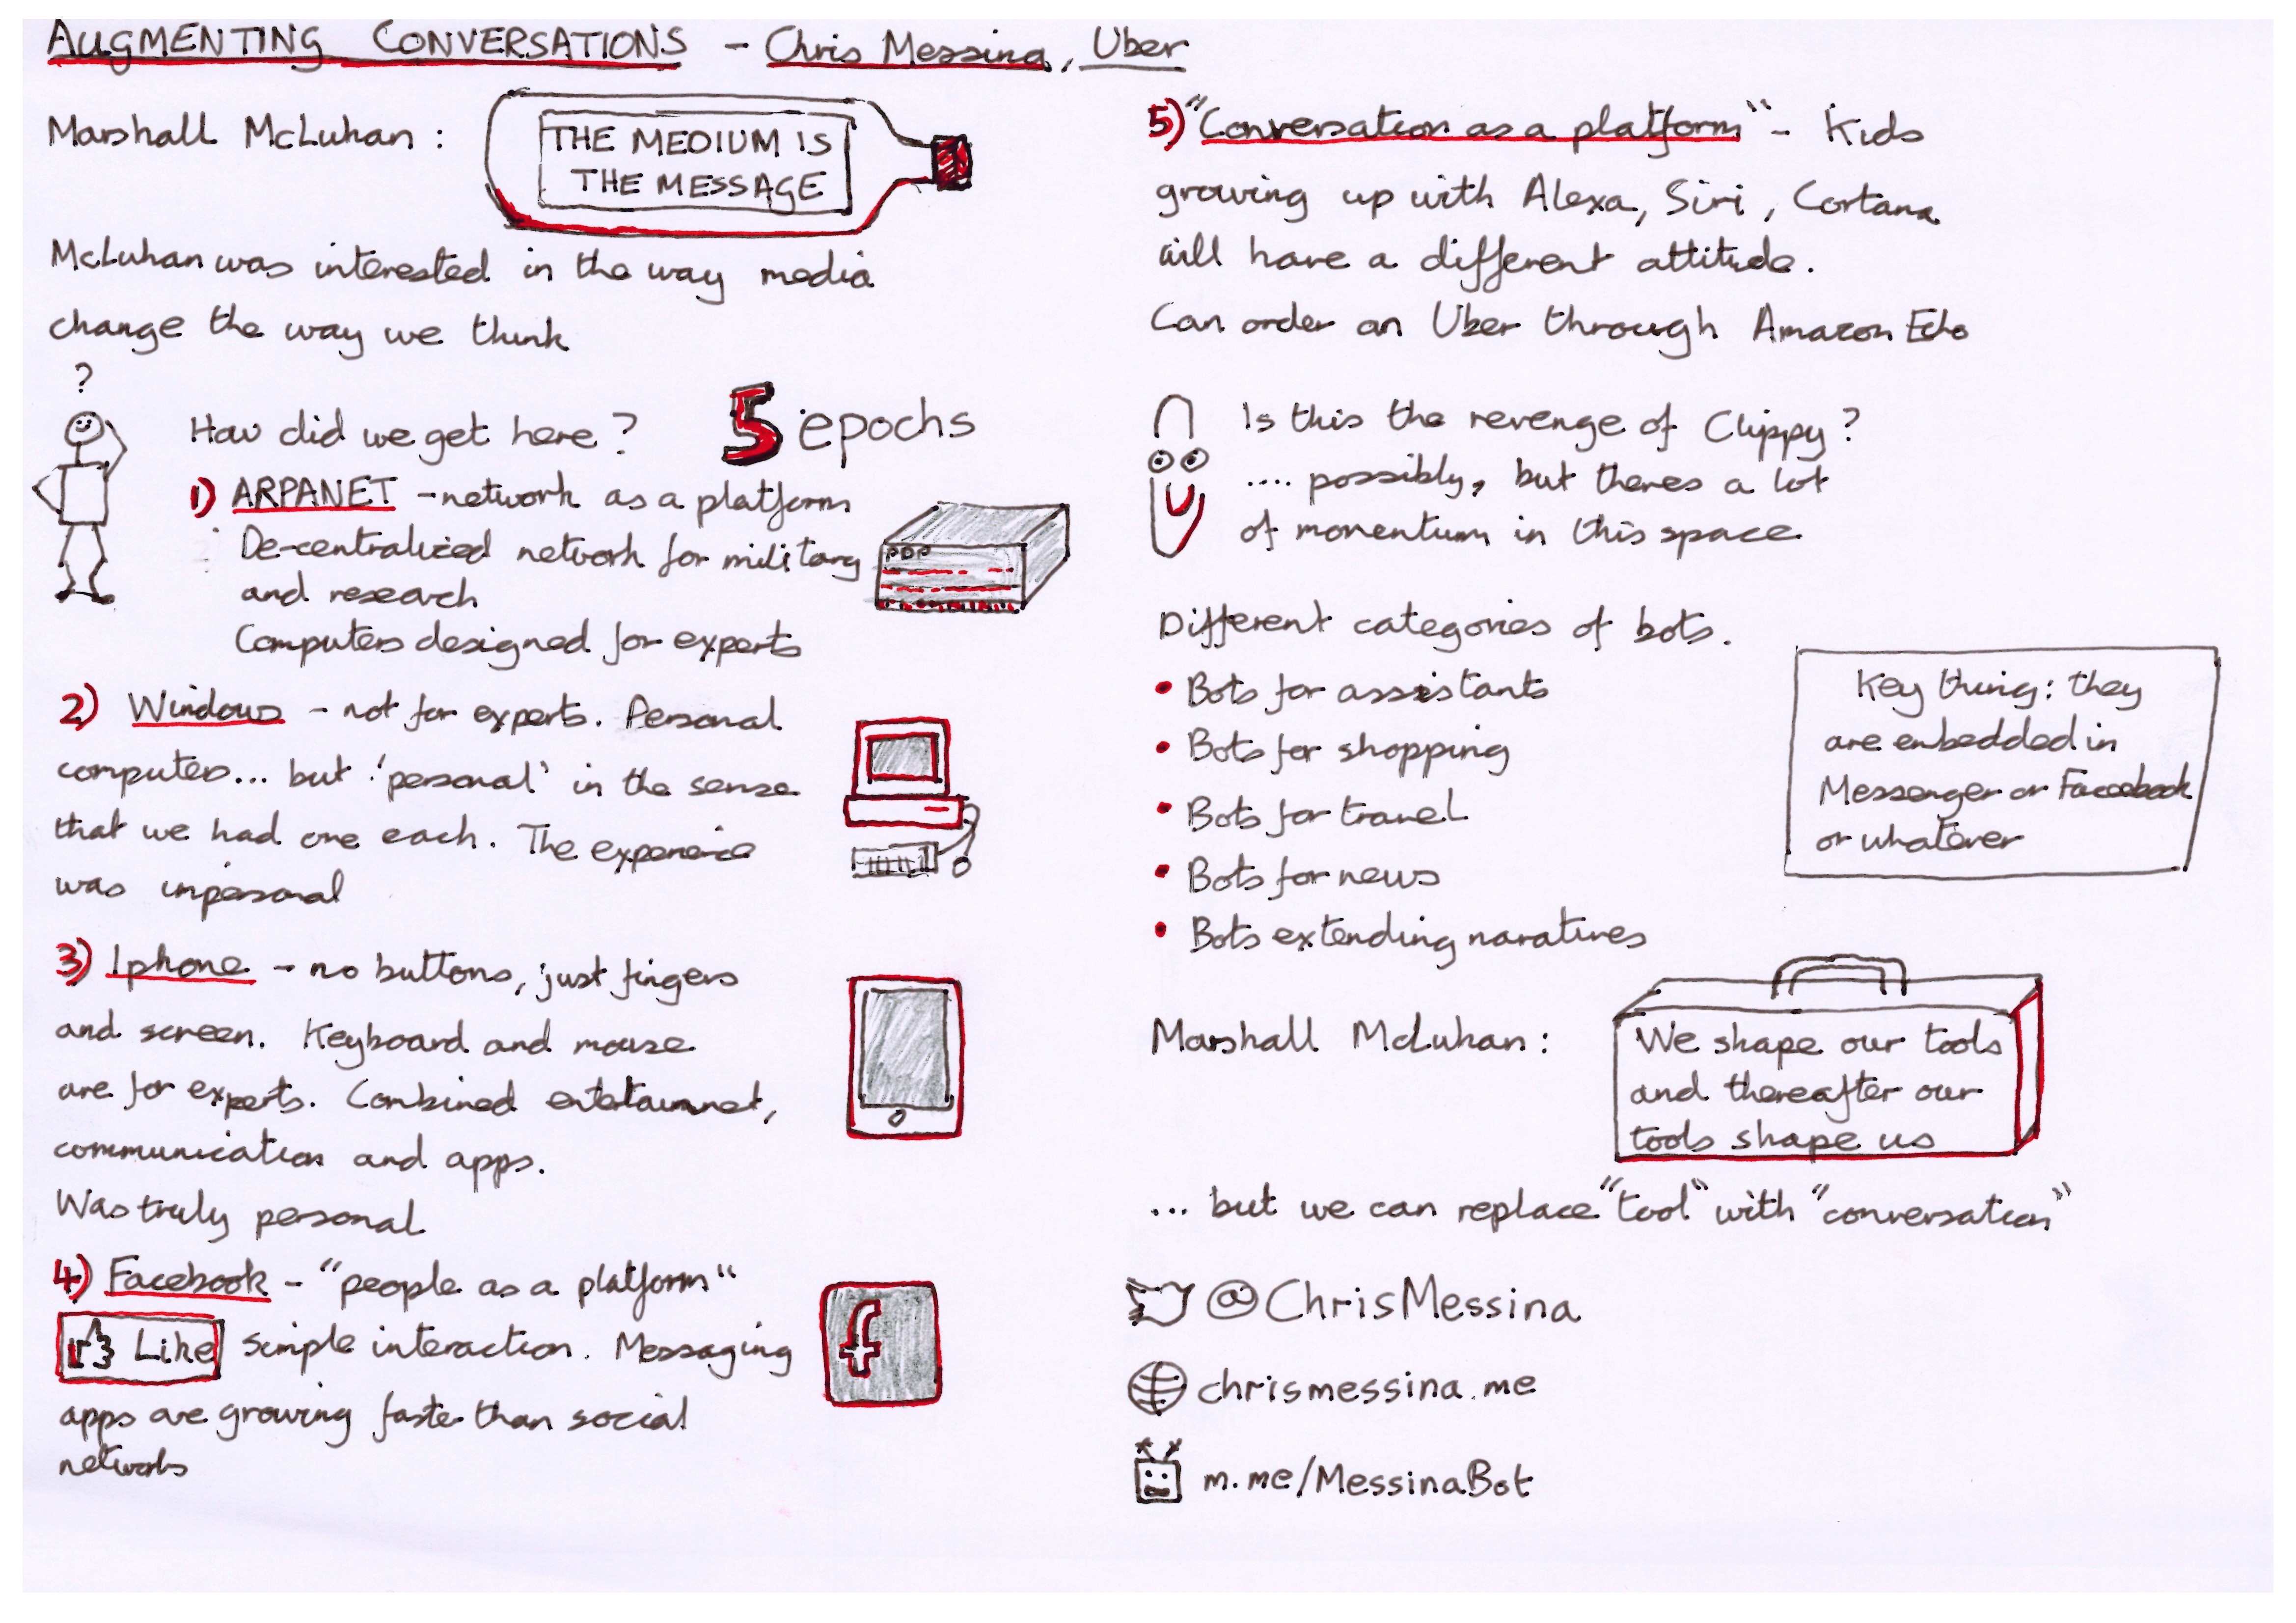 AUGMENTING CONVERSATIONS - Chris Messina, Uber
Marshall McLuhan :
THE MEDIUM IS
THE MESSAGE
McLuhan was interested in the way media
change the way we think
?
How did we get here? 5 epochs
1) ARPANET - network as a platform
De-centralized network for military
and research
Computers designed for experts
2) Windows - not for experts. Personal
computers... but 'personal' in the sense
that we had one each. The experience
was impersonal
3) Iphone - no buttons, just fingers
and screen. Keyboard and mouse
are for experts. Combined entertainment,
communication and apps.
Was truly personal
4) Facebook - "people as a platform"
Like simple interaction. Messaging
f
apps are growing faster than social
networks
5) "Conversation as a platform" - Kids
growing up with Alexa, Siri, Cortana
will have a different attitude.
Can order an Uber through Amazon Echo
Is this the revenge of Clippy?
.... possibly, but theres a lot
of momentum in this space
Different categories of bots.
• Bots for assistants
• Bots for shopping
• Bots for travel
• Bots for news
• Bots extending naratives
Key thing: they
are enbedded in
Messenger or Facebook
or whatever
Marshall McLuhan :
We shape our tools
and thereafter our
tools shape us
... but we can replace "tool" with "conversation"
@ChrisMessina
chrismessina.me
m.me/MessinaBot